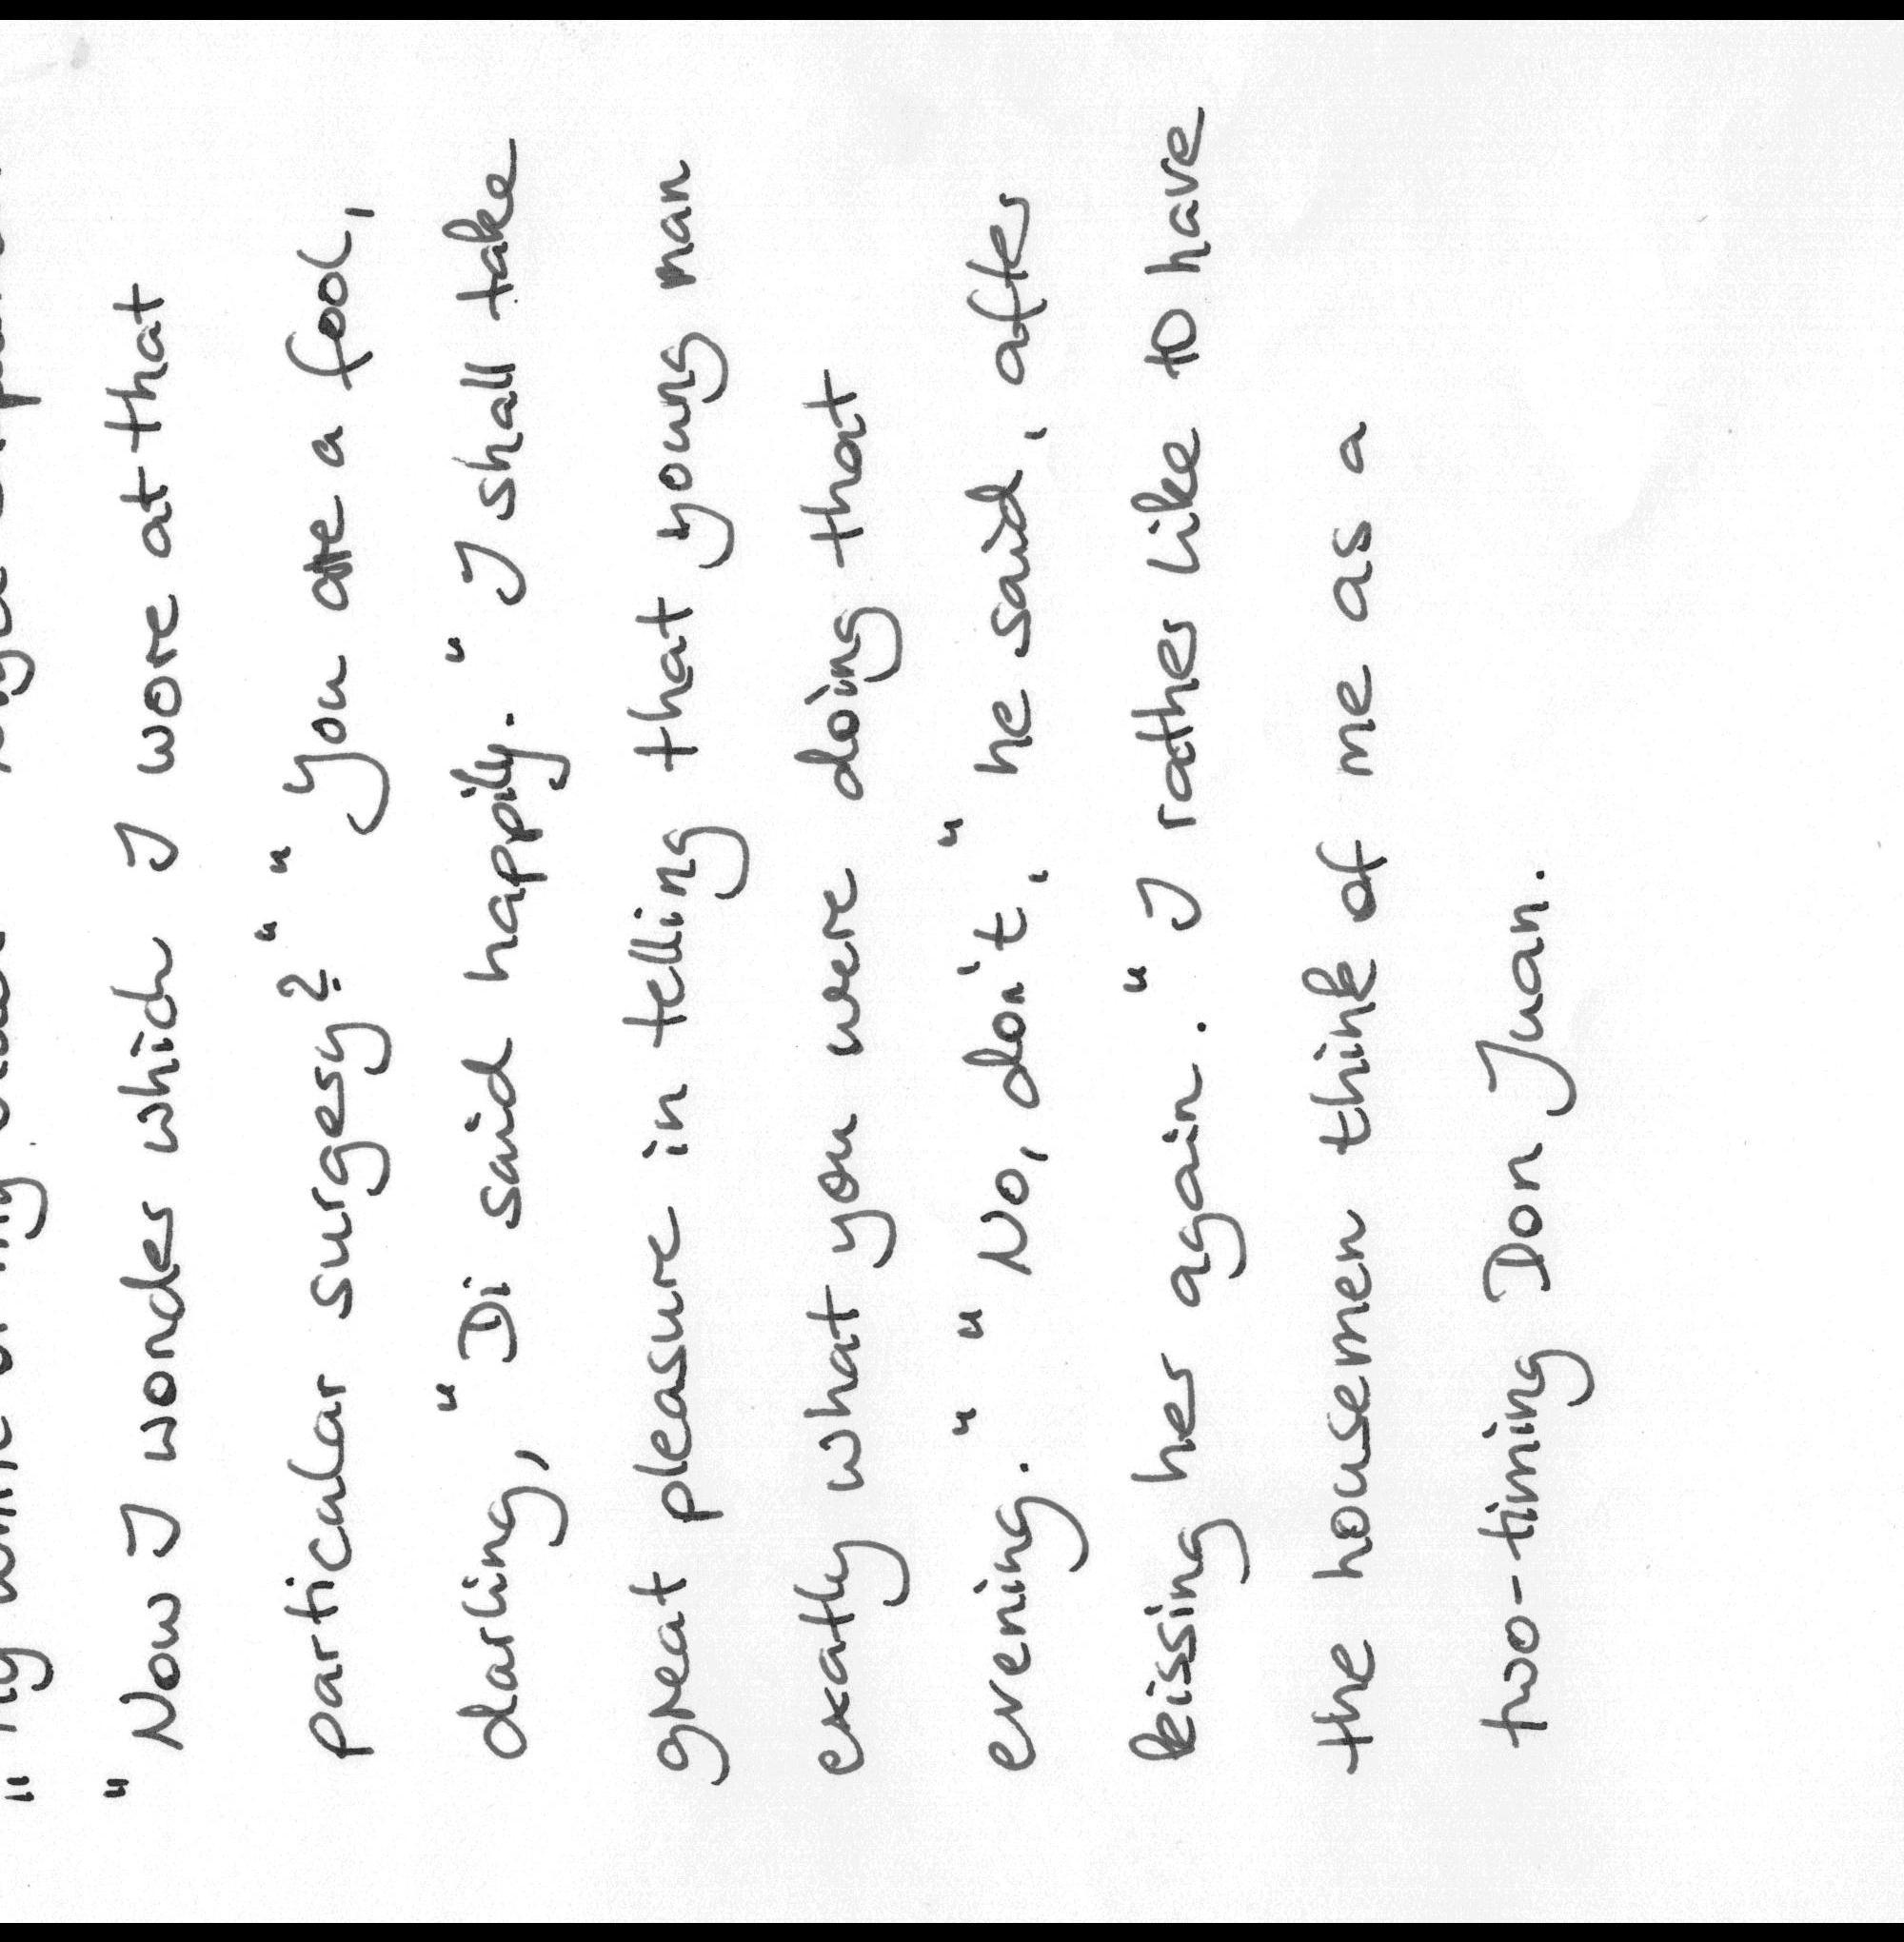 "Now I wonder which I wore at that
particular surgery?" "You are a fool,
darling," Di said happily. "I shall take
great pleasure in telling that young man
exatly what you were doing that
evening." "No, don't," he said, after
kissing her again. "I rather like to have
the housemen think of me as a
two-timing Don Juan.